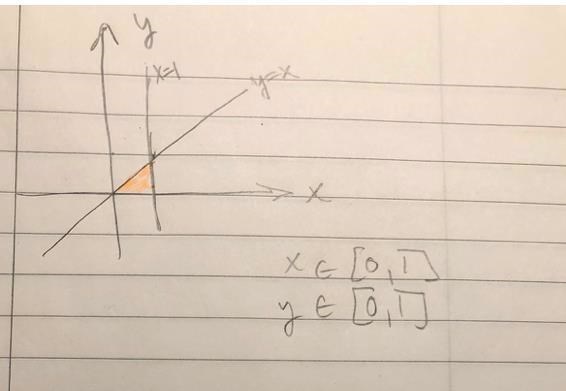 y
x=1
y=x
x
x ∈ [0,1]
y ∈ [0,1]